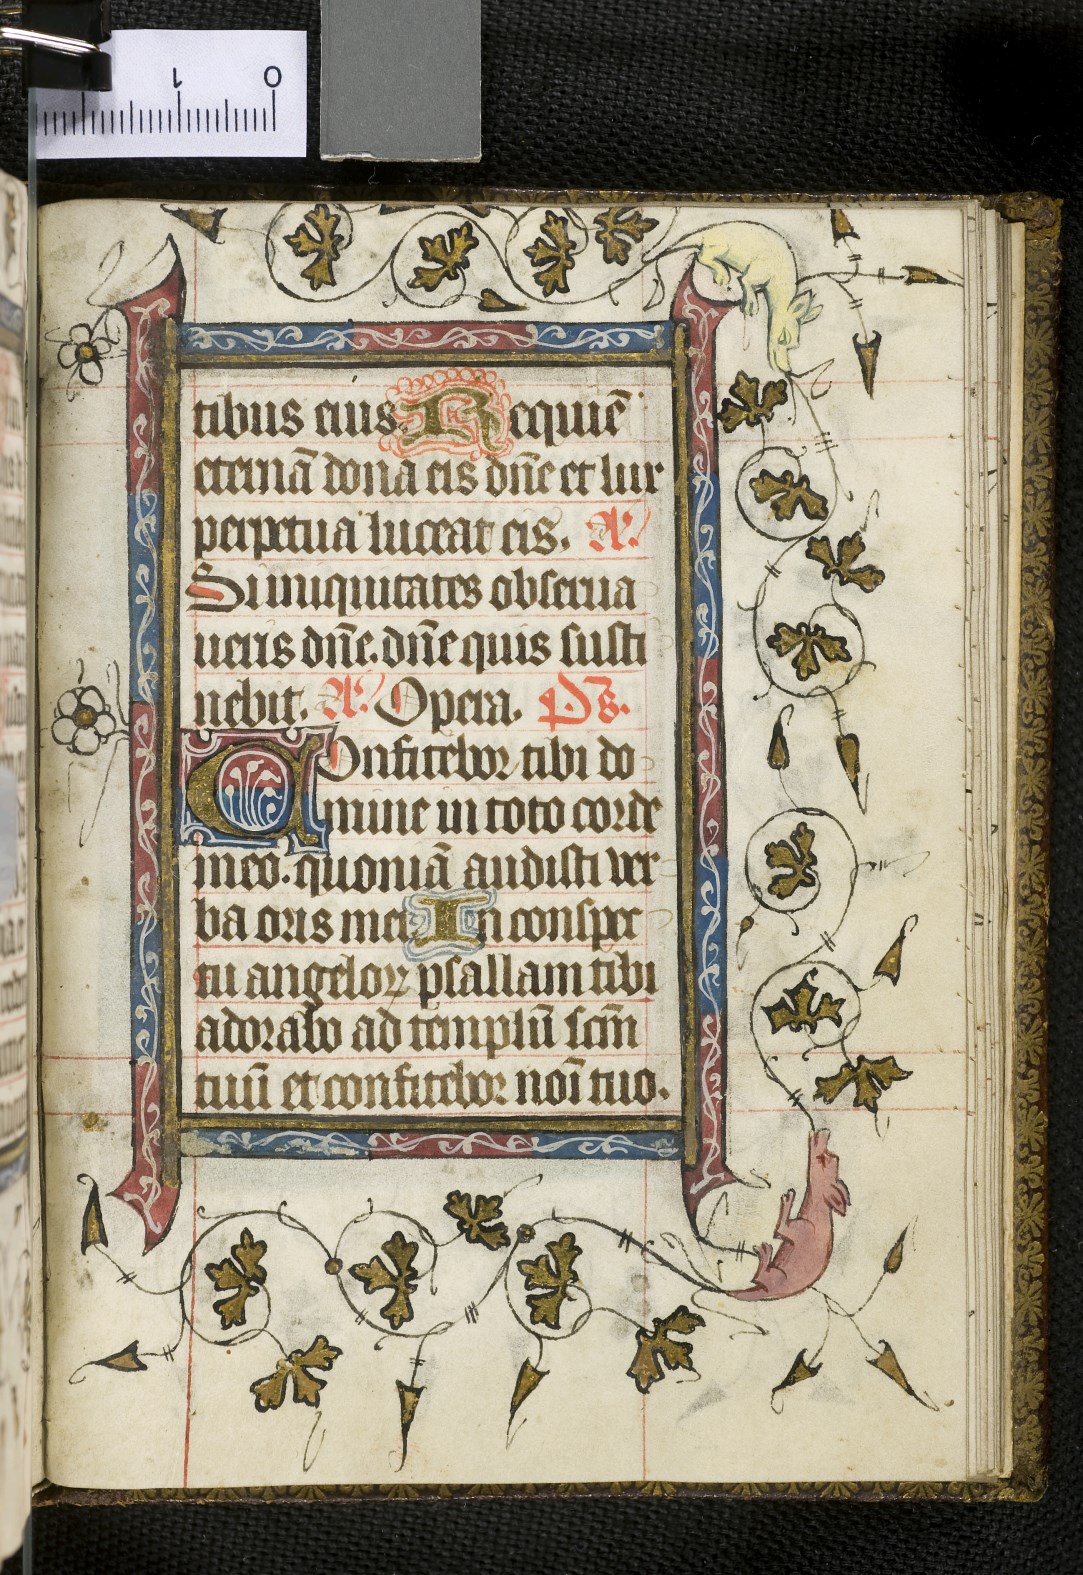 1 0
tibus eius. Requiē
eternā dona eis dn̄e et lux
perpetua luceat eis. A'.
Si iniquitates obserua
ueris dn̄e. dn̄e quis susti
nebit. A'. Opera. Ps.
Confitebor tibi do
mine in toto corde
meo. quoniā audisti ver
ba oris mei In conspec
tu angeloꝝ psallam tibi
adorabo ad templū scm̄
tuū et confitebor noī tuo.